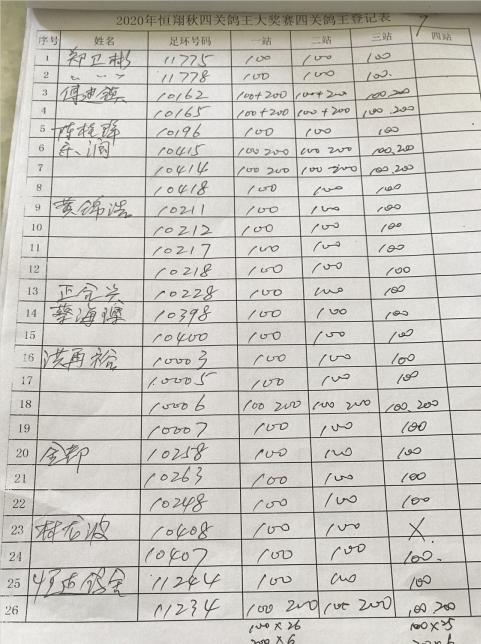 2020年恒翔秋四关鸽王大奖赛四关鸽王登记表
序号 姓名 足环号码 一站 二站 三站 四站
1 郑卫彬 11775 100 100 100
2 〃 〃 〃 11778 100 100 100.
3 10162 100+200 100+200 100.200
4 10165 100+200 100+200 100.200
5 10196 100 100 100
6 10415 100 200 100 200 100.200
7 10414 100 200 100 200 100.200
8 10418 100 100 100
9 黄锦浩 10211 100 100 100
10 10212 100 100 100
11 10217 100 100 100
12 10218 100 100 100
13 10228 100 100 100
14 蔡海 10398 100 100 100
15 10400 100 100 100
16 洪再裕 10003 100 100 100
17 10005 100 100 100
18 10006 100 200 100 200 100.200
19 10007 100 100 100
20 10258 100 100 100
21 10263 100 100 100
22 10248 100 100 100
23 林龙波 10408 100 100 X
24 10407 100 100 100.
25 11244 100 100 100
26 11234 100 200 100 200 100.200
100×26 100×25
200×6